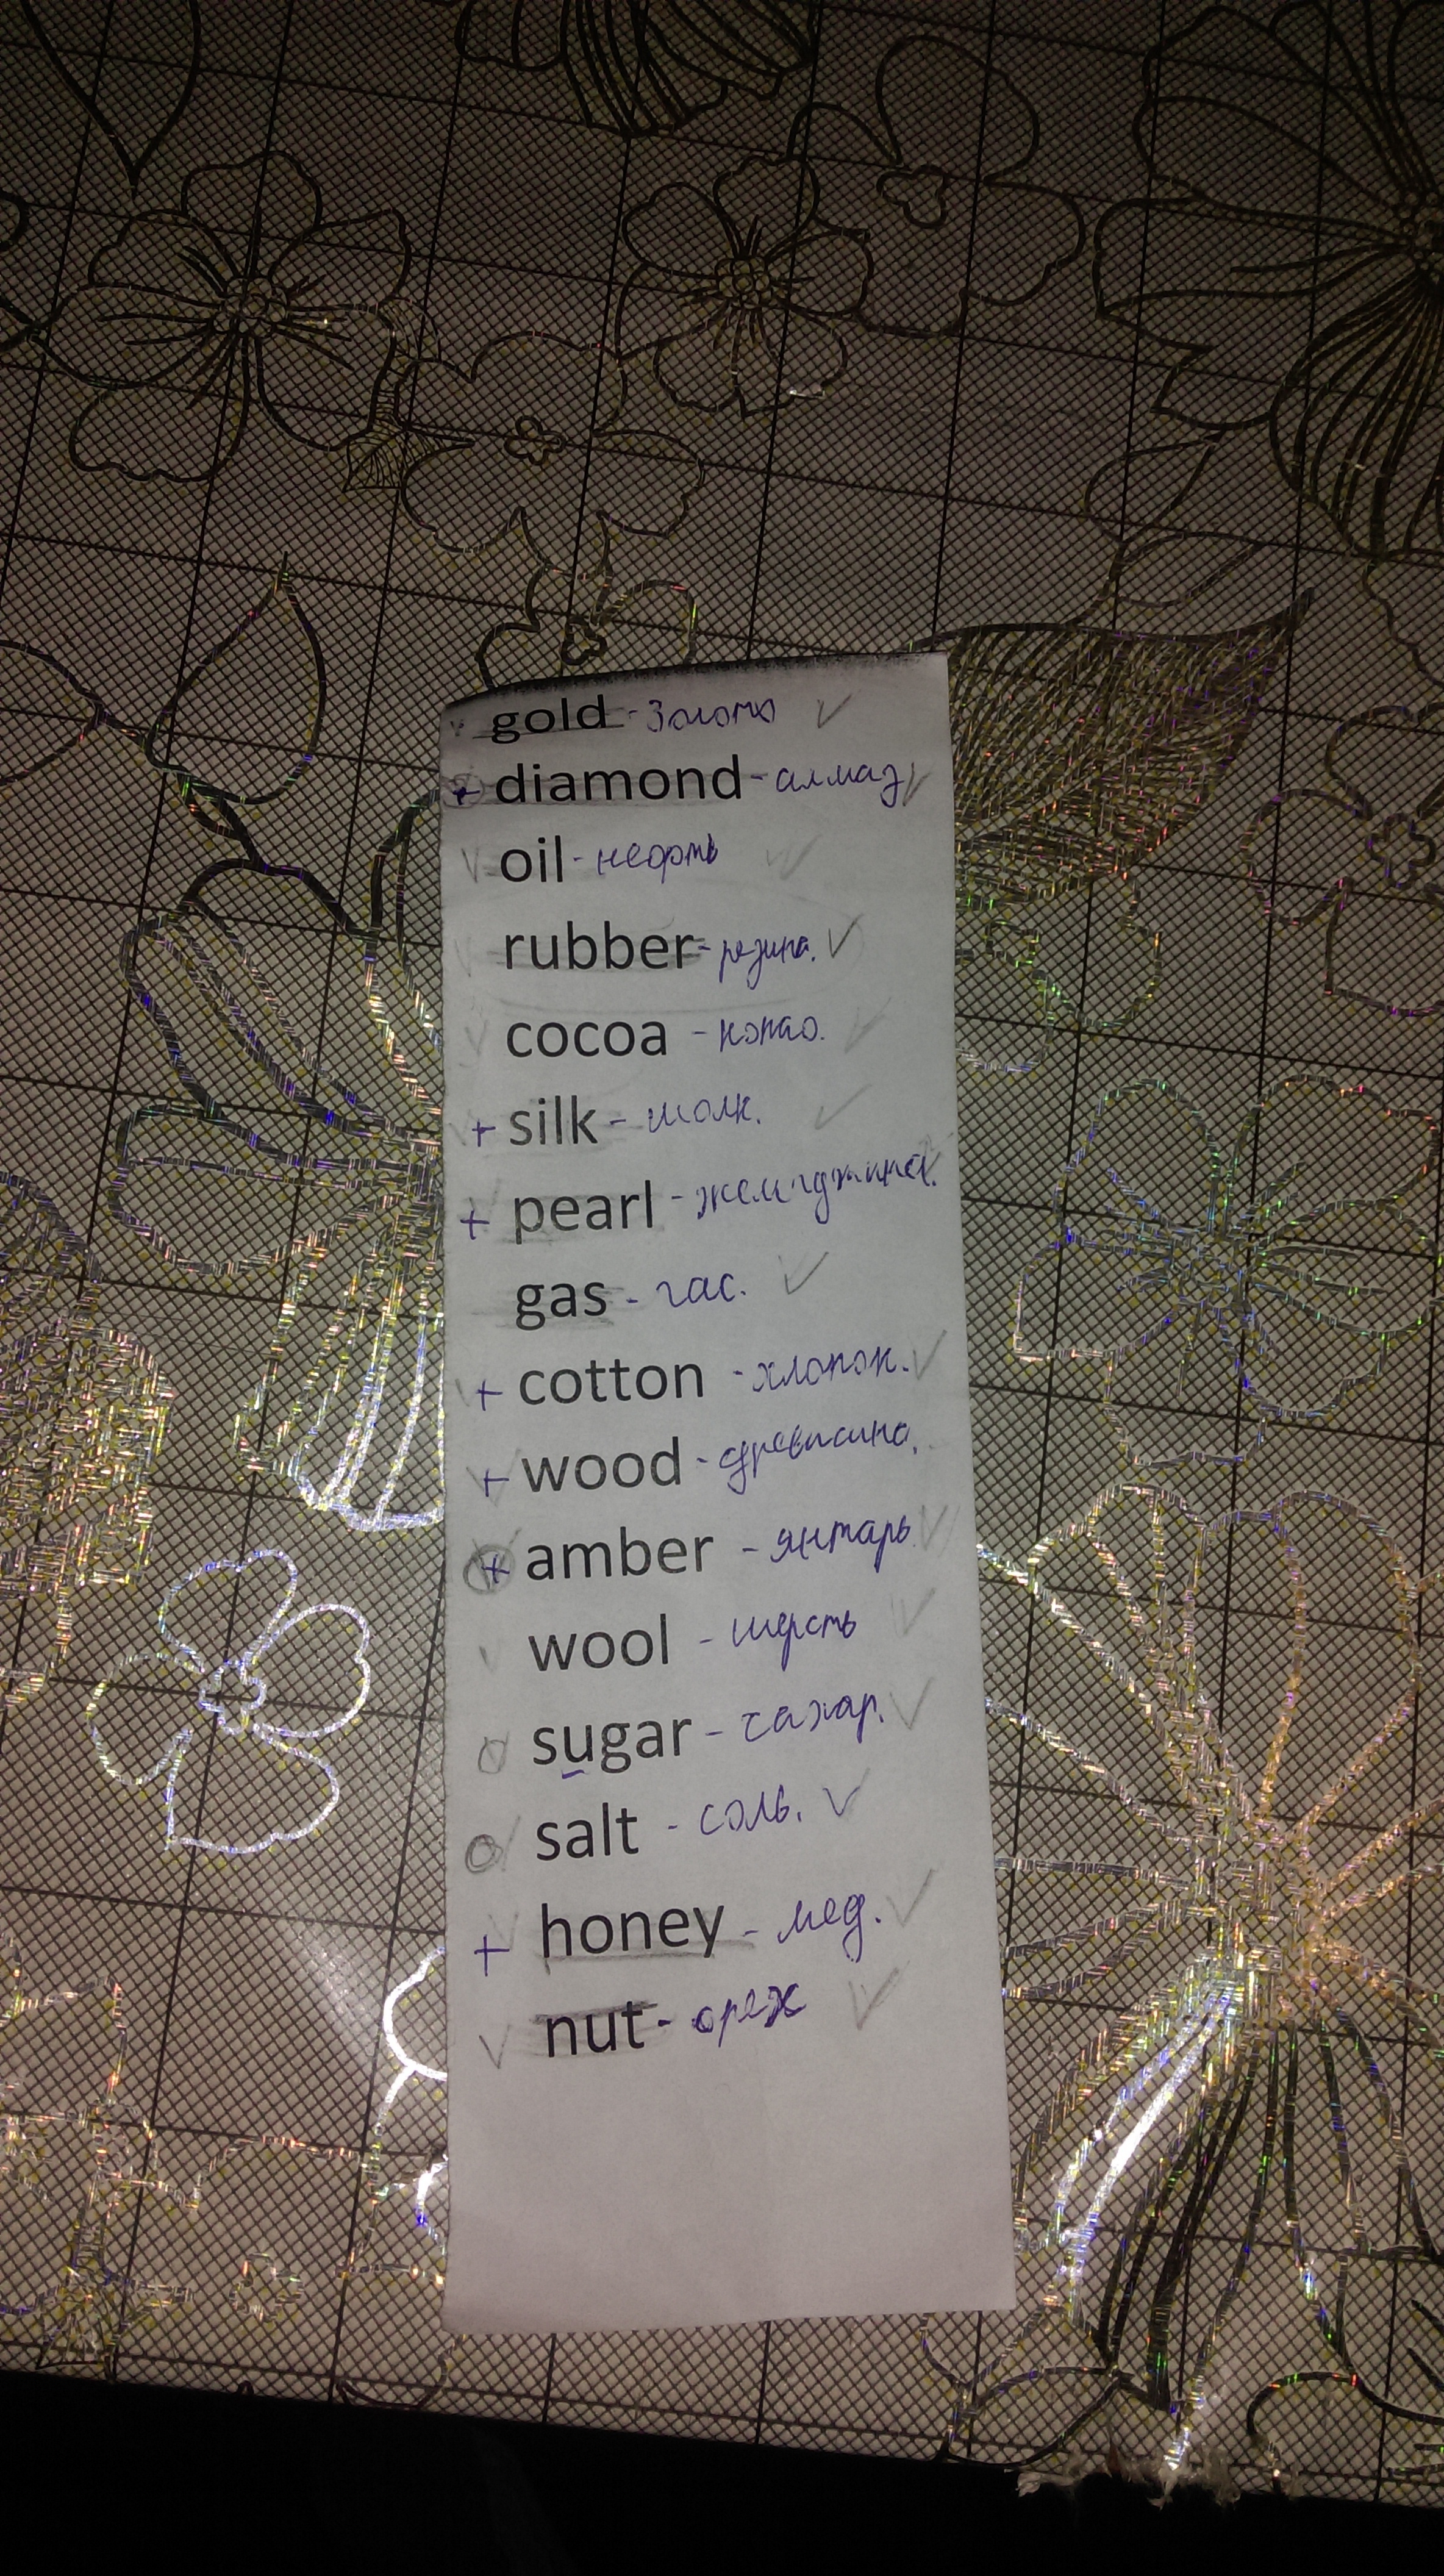 gold - золото
diamond - алмаз
oil - нефть
rubber - резина.
cocoa - какао.
silk - шолк.
pearl -
gas - гас.
cotton - хлопок.
wood - древисина.
amber - янтарь
wool - шерсть
sugar - сахар.
salt - соль.
honey - мед.
nut - орех